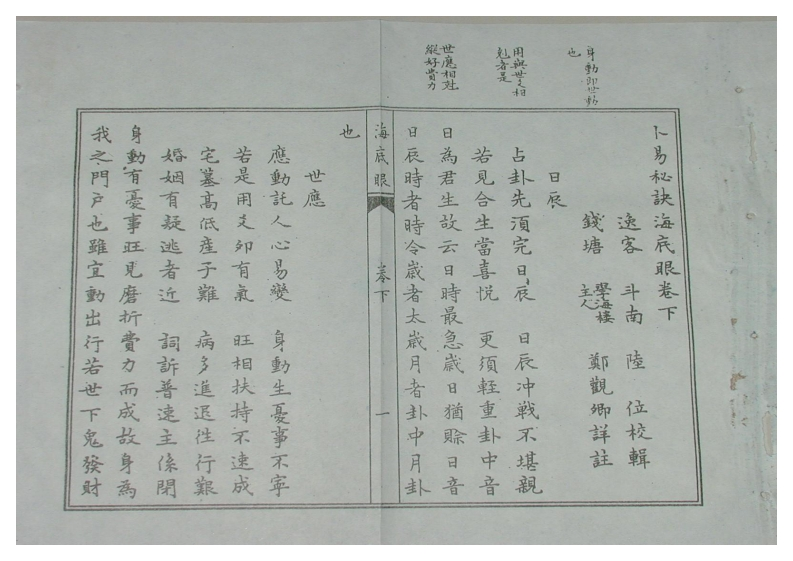 身動即世動
也
用與世爻相
剋者是
世應相尅
縱好費力
卜易秘訣海底眼卷下
逸客 斗南 陸 位校輯
錢塘 學海樓主人 鄭觀卿詳註
日辰
占卦先須完日辰 日辰冲戰不堪親
若見合生當喜悅 更須輕重卦中音
日為君生故云日時最急歲日猶賒日音
日辰時者時令歲者太歲月者卦中月卦
海底眼 卷下 一
也
世應
應動託人心易變 身動生憂事不寧
若是用爻卯有氣 旺相扶持不速成
宅墓高低產子難 病多進退性行艱
婚姻有疑逃者近 詞訴普速主係閉
身動有憂事旺見磨折費力而成故身為
我之門户也雖宜動出行若世下鬼發財